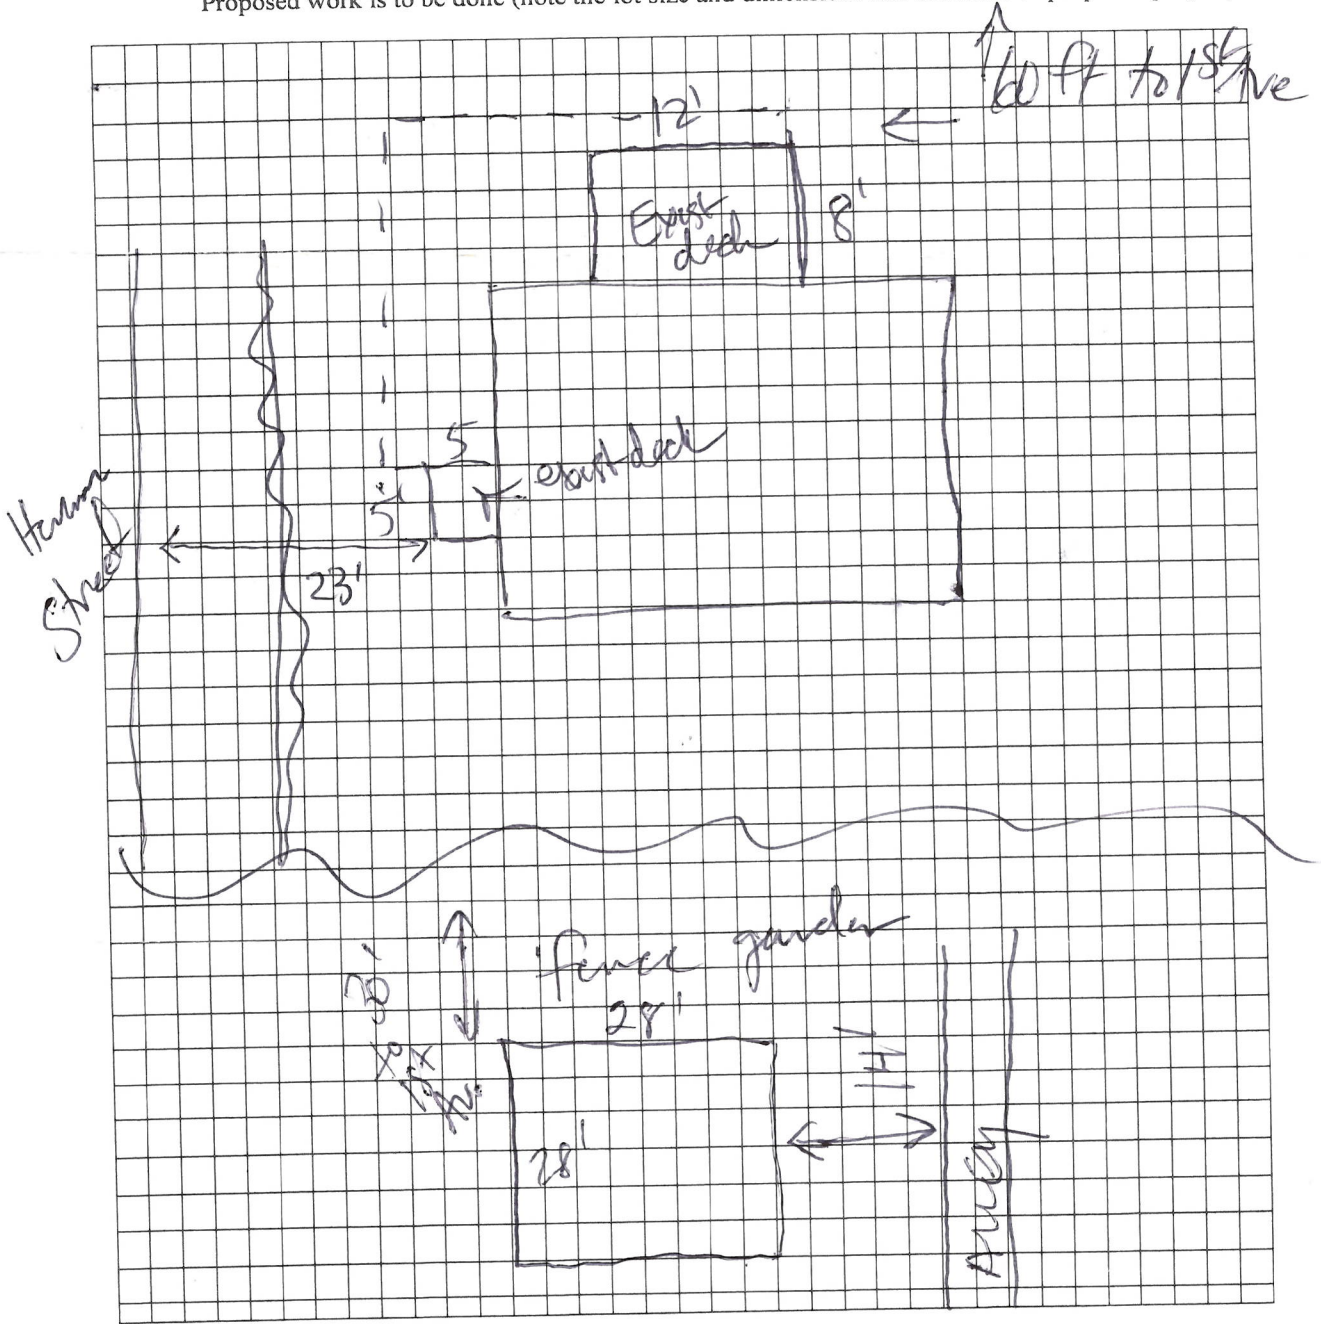 Proposed work is to be done (note the lot size and
60 ft to 1st Ave
12'
Exist
deck
8'
5
exist deck
5'
Street
23'
fence garden
30'
to
Av.
28'
14'
28'
Alley